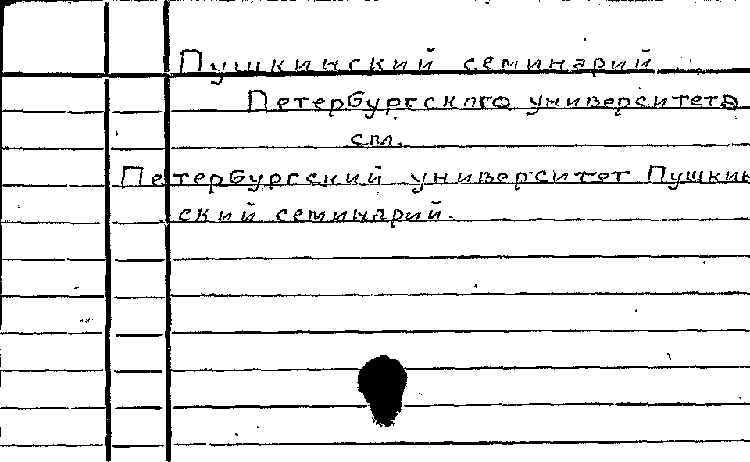 Пушкинский семинарий
Петербургского университета
см.
Петербургский университет Пушкин
ский семинарий.